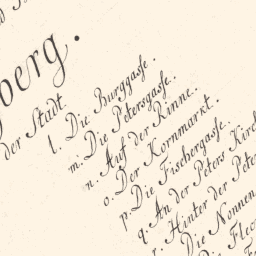 berg.
der Stadt.
l. Die Burggasse.
m. Die Petersgasse.
n. Auf der Rinne.
o. Der Kornmarkt.
p. Die Fischergasse.
q. An der Peters Kirch
r. Hinter der Pete
Die Nonnen
Die